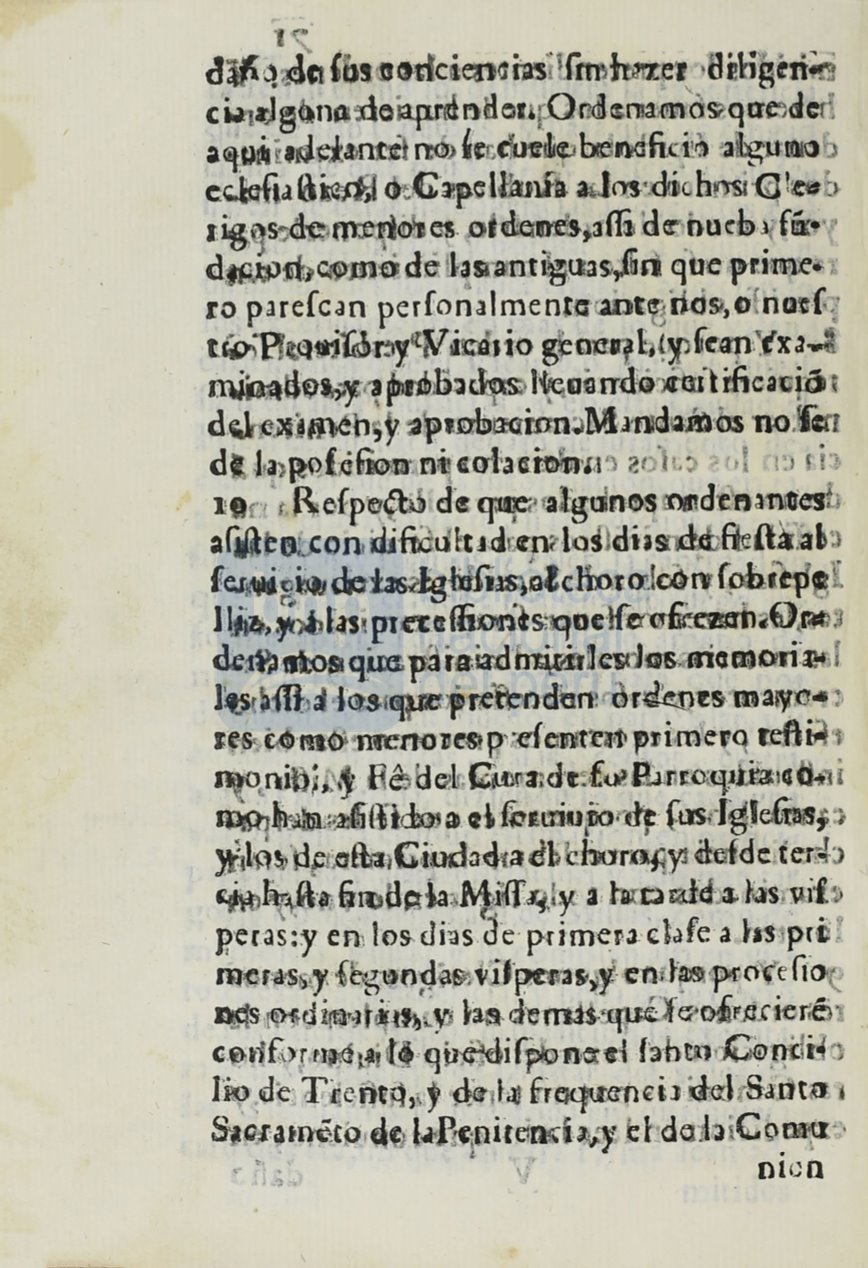 daño de sus conciencias sin hazer diligen-
cia alguna de aprender. Ordenamos que de
aqui adelante no se cuele beneficio alguno
eclesiastico, o Capellania a los dichos Cle-
rigos de menores ordenes, assi de nueba fũ-
dacion, como de las antiguas, sin que prime-
ro parescan personalmente ante nos, o nues
tro Provisor y Vicario general, y sean exa-
minados, y aprobados lleuando certificaciõ
del examen, y aprobacion. Mandamos no se
de la posesion ni colacion.
19 Respecto de que algunos ordenantes
asisten con dificultad en los dias de fiesta al
seruicio de las Iglesias, al choro con sobrepe
lliz, y a las processiones que se ofrezen. Or-
denamos que para admitirles los memoria-
les assi a los que pretenden ordenes mayo-
res como menores presenten primero testi-
monio, y Fê del Cura de su Parroquia co-
mo han asistido a el seruicio de sus Iglesias,
y los de esta Ciudad a el choro, y desde ter-
cia hasta fin de la Missa, y a la tarde a las vis
peras: y en los dias de primera clase a las pri
meras, y segundas visperas, y en las procesio
nes ordinarias, y las demas que se ofrecierẽ
conforme a lo que dispone el santo Conci-
lio de Trento, y de la frequencia del Santo
Sacramẽto de la Penitencia, y el de la Comu
nion